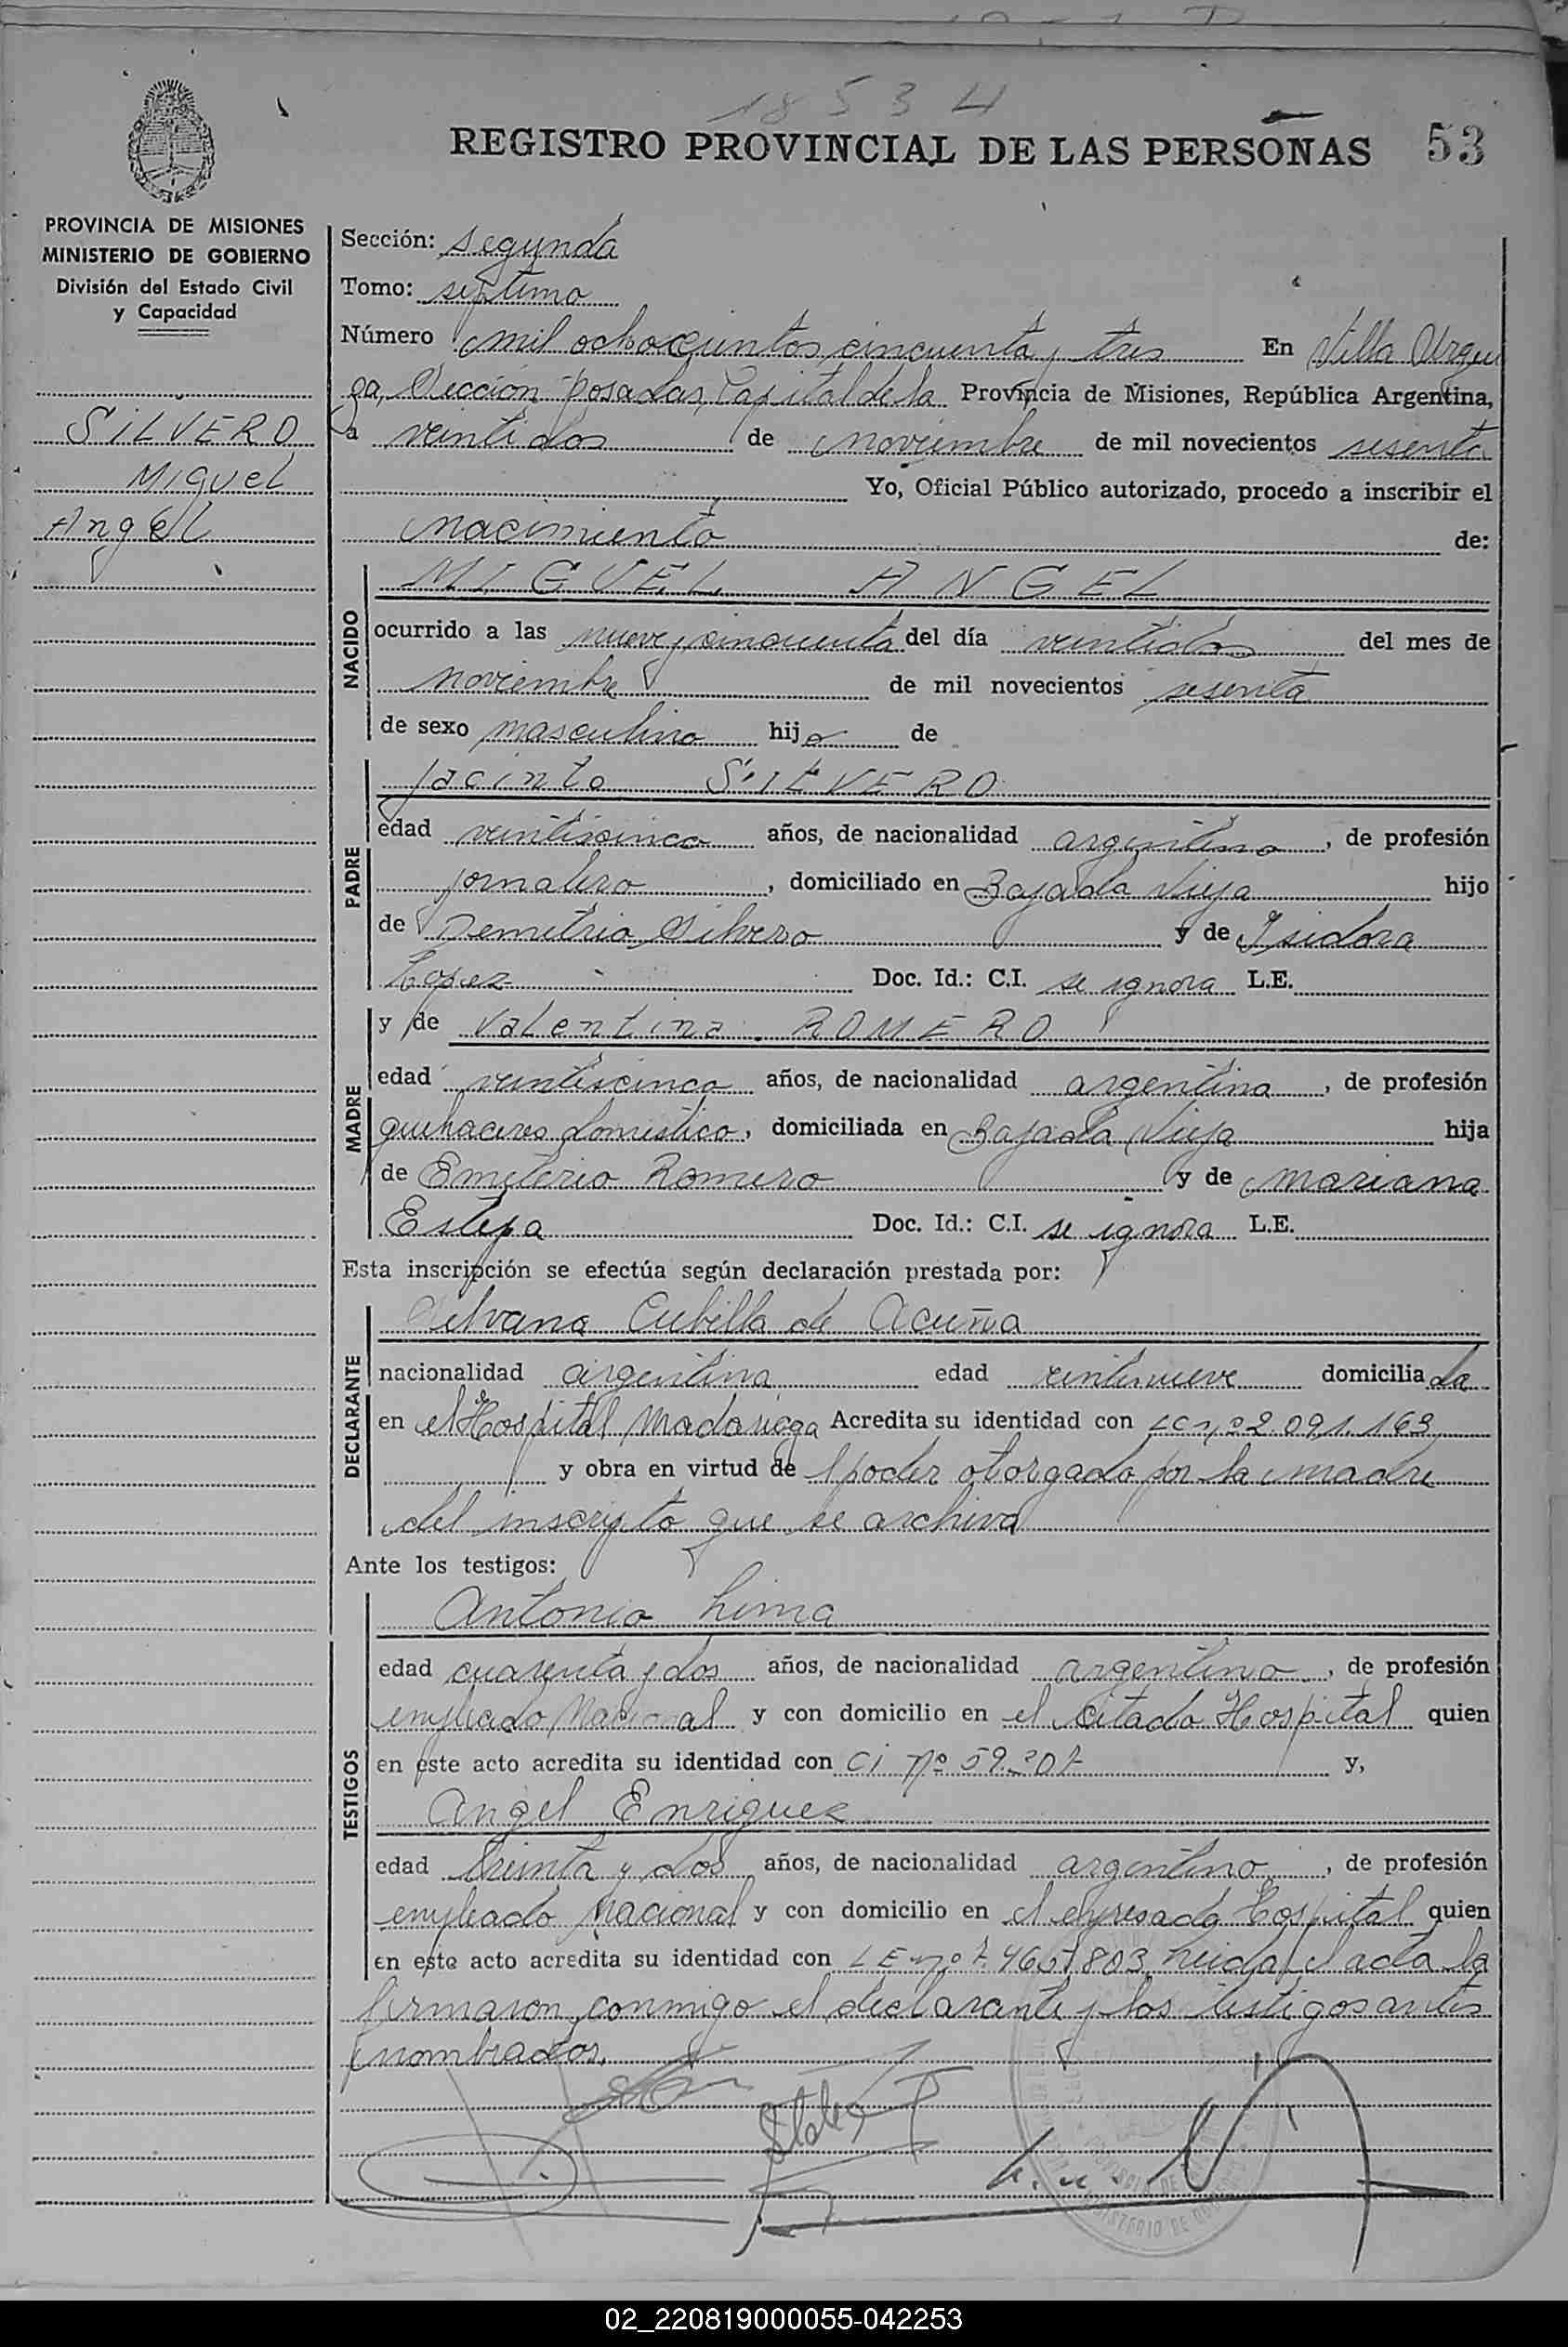 1853 4
REGISTRO PROVINCIAL DE LAS PERSONAS 53
PROVINCIA DE MISIONES
MINISTERIO DE GOBIERNO
División del Estado Civil
y Capacidad
SILVERO
MIGUEL
Angel
Sección: segunda
Tomo: septimo
Número mil ochocientos cincuenta y tres En Villa Urqui
za, Sección Posadas, Capital de la Provincia de Misiones, República Argentina,
a veintidos de noviembre de mil novecientos sesenta
Yo, Oficial Público autorizado, procedo a inscribir el
nacimiento de:
NACIDO
MIGUEL ANGEL
ocurrido a las nueve y cincuenta del día veintidos del mes de
noviembre de mil novecientos sesenta
de sexo masculino hijo de
PADRE
Jacinto SILVERO
edad veinticinco años, de nacionalidad argentino, de profesión
jornalero, domiciliado en Bajada Vieja hijo
de Demetrio Silvero y de Isidora
Lopez Doc. Id.: C.I. se ignora L.E.
MADRE
y de Valentina ROMERO
edad veinticinco años, de nacionalidad argentina, de profesión
quehaceres domestico, domiciliada en Bajada Vieja hija
de Emeterio Romero y de Mariana
Estepa Doc. Id.: C.I. se ignora L.E.
Esta inscripción se efectúa según declaración prestada por:
DECLARANTE
Silvana Cubilla de Acuña
nacionalidad argentina edad veintinueve domiciliada
en el Hospital Madariaga Acredita su identidad con 2.091.163
y obra en virtud del poder otorgado por la madre
del inscripto que se archiva
Ante los testigos:
TESTIGOS
Antonio Lima
edad cuarenta y dos años, de nacionalidad argentino, de profesión
empleado Nacional y con domicilio en el citado Hospital quien
en este acto acredita su identidad con CI Nº 59.207 y,
Angel Enriquez
edad treinta y dos años, de nacionalidad argentino, de profesión
empleado Nacional y con domicilio en el expresado Hospital quien
en este acto acredita su identidad con LE nº 7.465.803 leida el acta la
firmaron conmigo el declarante y los testigos antes
nombrados.
02_220819000055-042253